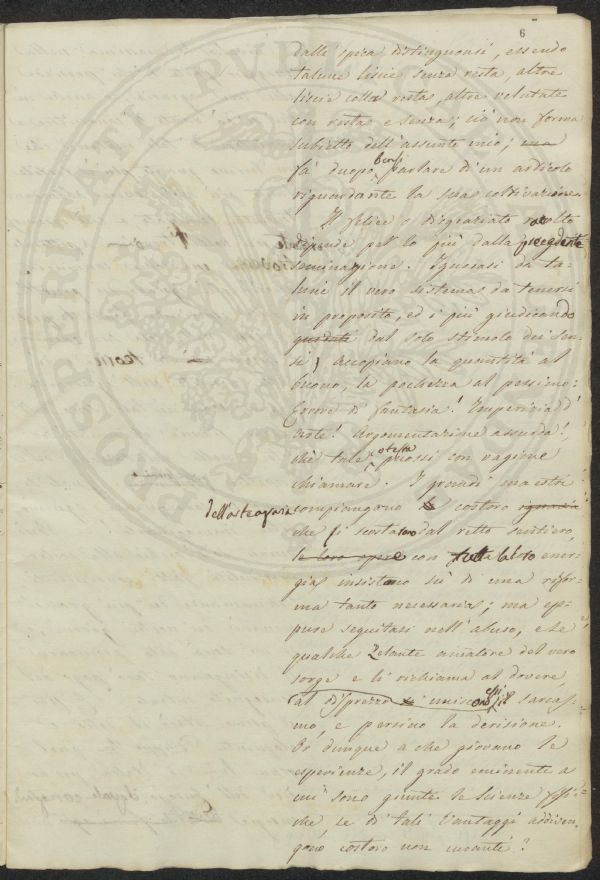 6
dalle spica distinguonsi, essendo
talune liscie senza resta, altre
liscie colla resta, altre velutate
con resta e senza; ciò non forma
subietto dell'assunto mio; ma
fa duopo bensì parlare d'un articolo
riguardante la sua coltivazione.
Il felice o disgraziato racolto
dipende per lo più dalla precedente
seminagione. Ignorasi da ta-
luni il vero sistema da tenersi
in proposito, ed i più giudicando
dal solo stimolo dei sen-
si, accopiano la quantità al
buono, la pochezza al pessimo:
Errore di fantasia! Imperizia d'
arte! Argomentazione assurda!
chè tale puossi con ragione
chiamare. I grandi maestri
dell'arte agraria compiangono costoro
che si scostarono dal retto sentiero,
le loro opre con tutta la loro ener-
gia insistono sù di una rifor-
ma tanto necessaria; ma ep-
pure seguitasi nell'abuso, e se
qualche zelante amatore del vero
sorge e li richiama al dovere
al disprezzo uniscono essi il sarcas-
mo, e persino la derisione.
Or dunque a che giovano le
esperienze, il grado eminente a
cui sono giunte le scienze fisi-
che, se di tali vantaggi addiven-
gono costoro non curanti?
PROSPERITATI PUBL